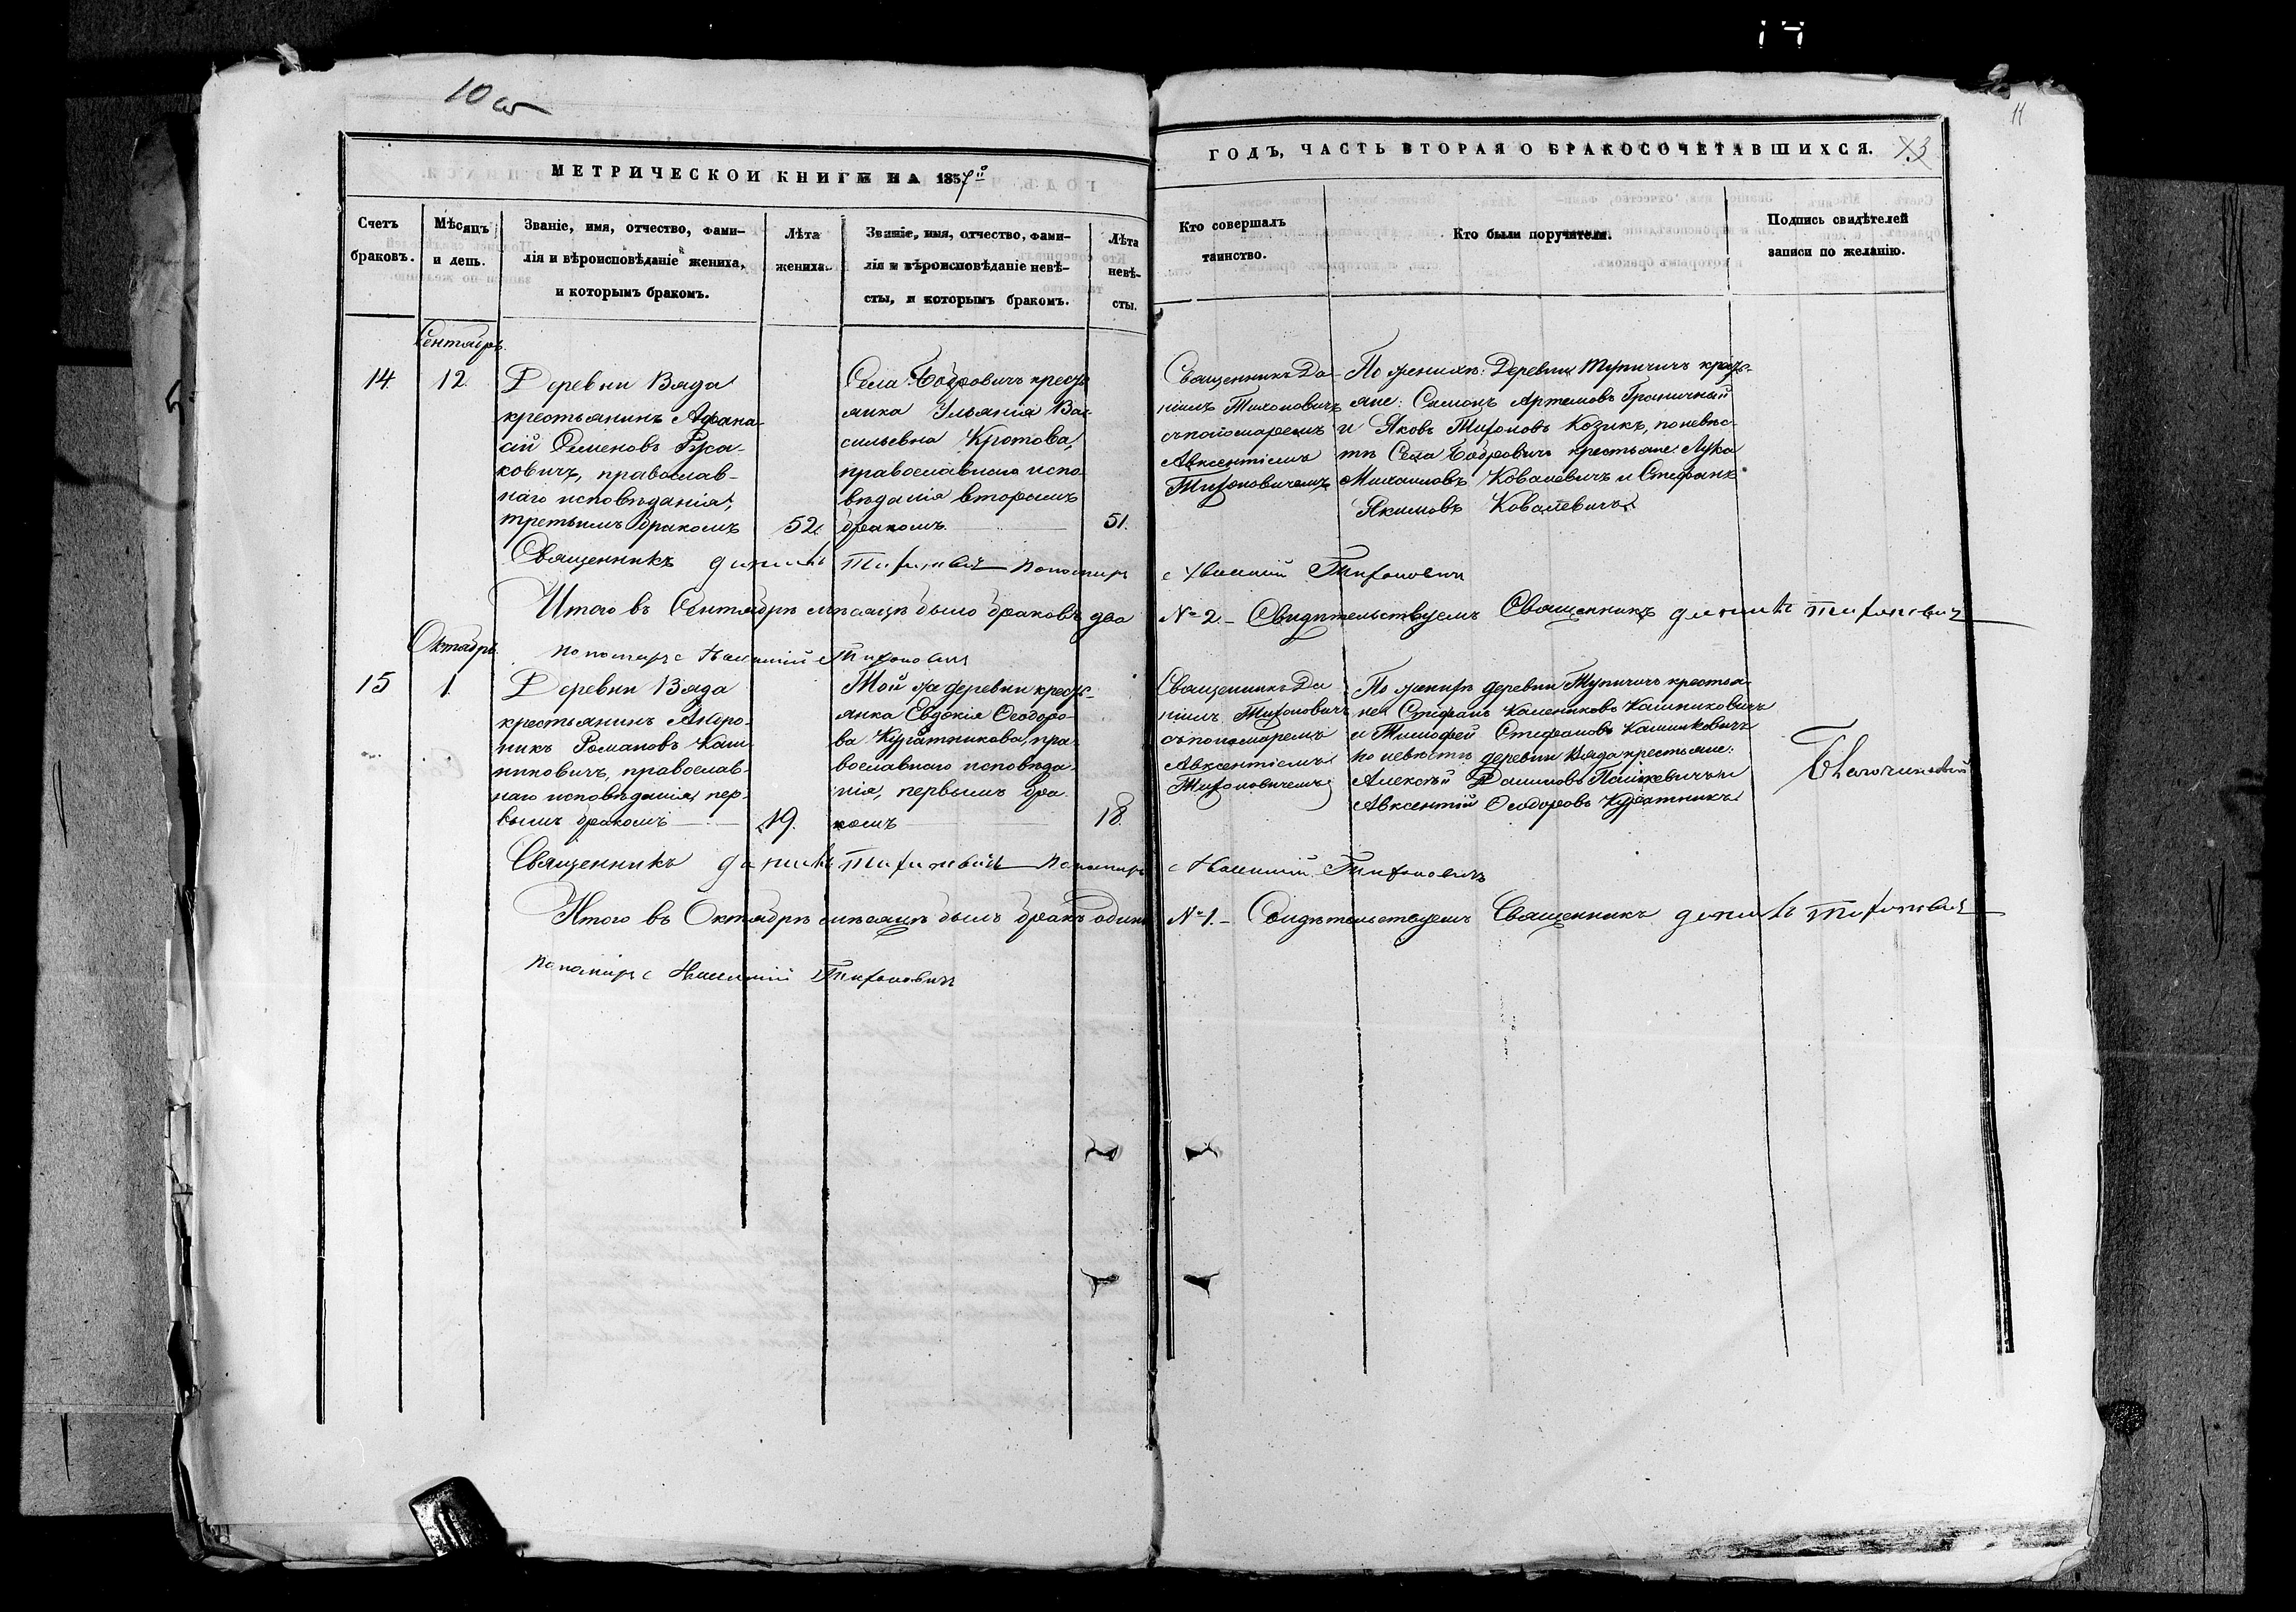 10 об
11
МЕТРИЧЕСКОЙ КНИГИ НА 1857й
ГОДЪ, ЧАСТЬ ВТОРАЯ О БРАКОСОЧЕТАВШИХСЯ.
Счетъ
браковъ.
Мѣсяцъ
и день.
Званіе, имя, отчество, фами-
лія и вѣроисповѣданіе жениха,
и которымъ бракомъ.
Лѣта
жениха.
Званіе, имя, отчество, фами-
лія и вѣроисповѣданіе невѣ-
сты, и которымъ бракомъ.
Лѣта
невѣ-
сты.
Кто совершалъ
таинство.
Кто были поручители.
Подпись свидѣтелей
записи по желанію.
Сентябрь
14.
12.
Деревни Вяда
крестьянинъ Афана-
сій Семеновъ Руса-
ковичъ, православ-
наго исповѣданія,
третьимъ бракомъ
52.
Села Бобровичъ кресть-
янка Ульянія Ва-
сильевна Кротова,
православнаго испо-
вѣданія вторымъ
бракомъ.
51.
Священникъ Да-
ніилъ Тихоновичъ
съ пономаремъ
Авксентіемъ
Тихоновичемъ
По женихѣ: Деревни Тупичичъ кресть-
яне: Симонъ Артемовъ Граничный
и Яковъ Тихоновъ Козикъ, по невѣс-
тѣ Села Бобровичъ крестьяне: Лука
Михаиловъ Ковалевичъ и Стефанъ
Якимовъ Ковалевичъ.
Священникъ Даніилъ Тихоновичъ Пономарь Авксентій Тихоновичъ
Итого въ Сентябрѣ мѣсяцѣ было браковъ два № 2. – Свидѣтельствуемъ Священникъ Даніилъ Тихоновичъ
Пономарь Авксентій Тихоновичъ
Октябрь
15
1.
Деревни Вяда
крестьянинъ Андро-
никъ Романовъ Каш-
никовичъ, православ-
наго исповѣданія, пер-
вымъ бракомъ
19.
Той же деревни кресть-
янка Евдокія Ѳеодоро-
ва Куратникова, пра-
вославнаго исповѣда-
нія, первымъ бра-
комъ
18.
Священникъ Да
ніилъ Тихоновичъ
съ пономаремъ
Авксентіемъ
Тихоновичемъ
По женихѣ деревни Тупичичъ крестья-
не: Стефанъ Калениковъ Кашниковичъ
и Тимофей Стефановъ Кашниковичъ
по невѣстѣ деревни Вяда крестьяне:
Алексѣй Пашкевичъ и
Авксентій Ѳеодоровъ Куратникъ.
Священникъ Даніилъ Тихоновичъ Пономарь Авксентій Тихоновичъ
Итого въ Октябрѣ мѣсяцѣ былъ бракъ одинъ № 1. – Свидѣтельствуемъ Священникъ Даніилъ Тихоновичъ
Пономарь Авксентій Тихоновичъ